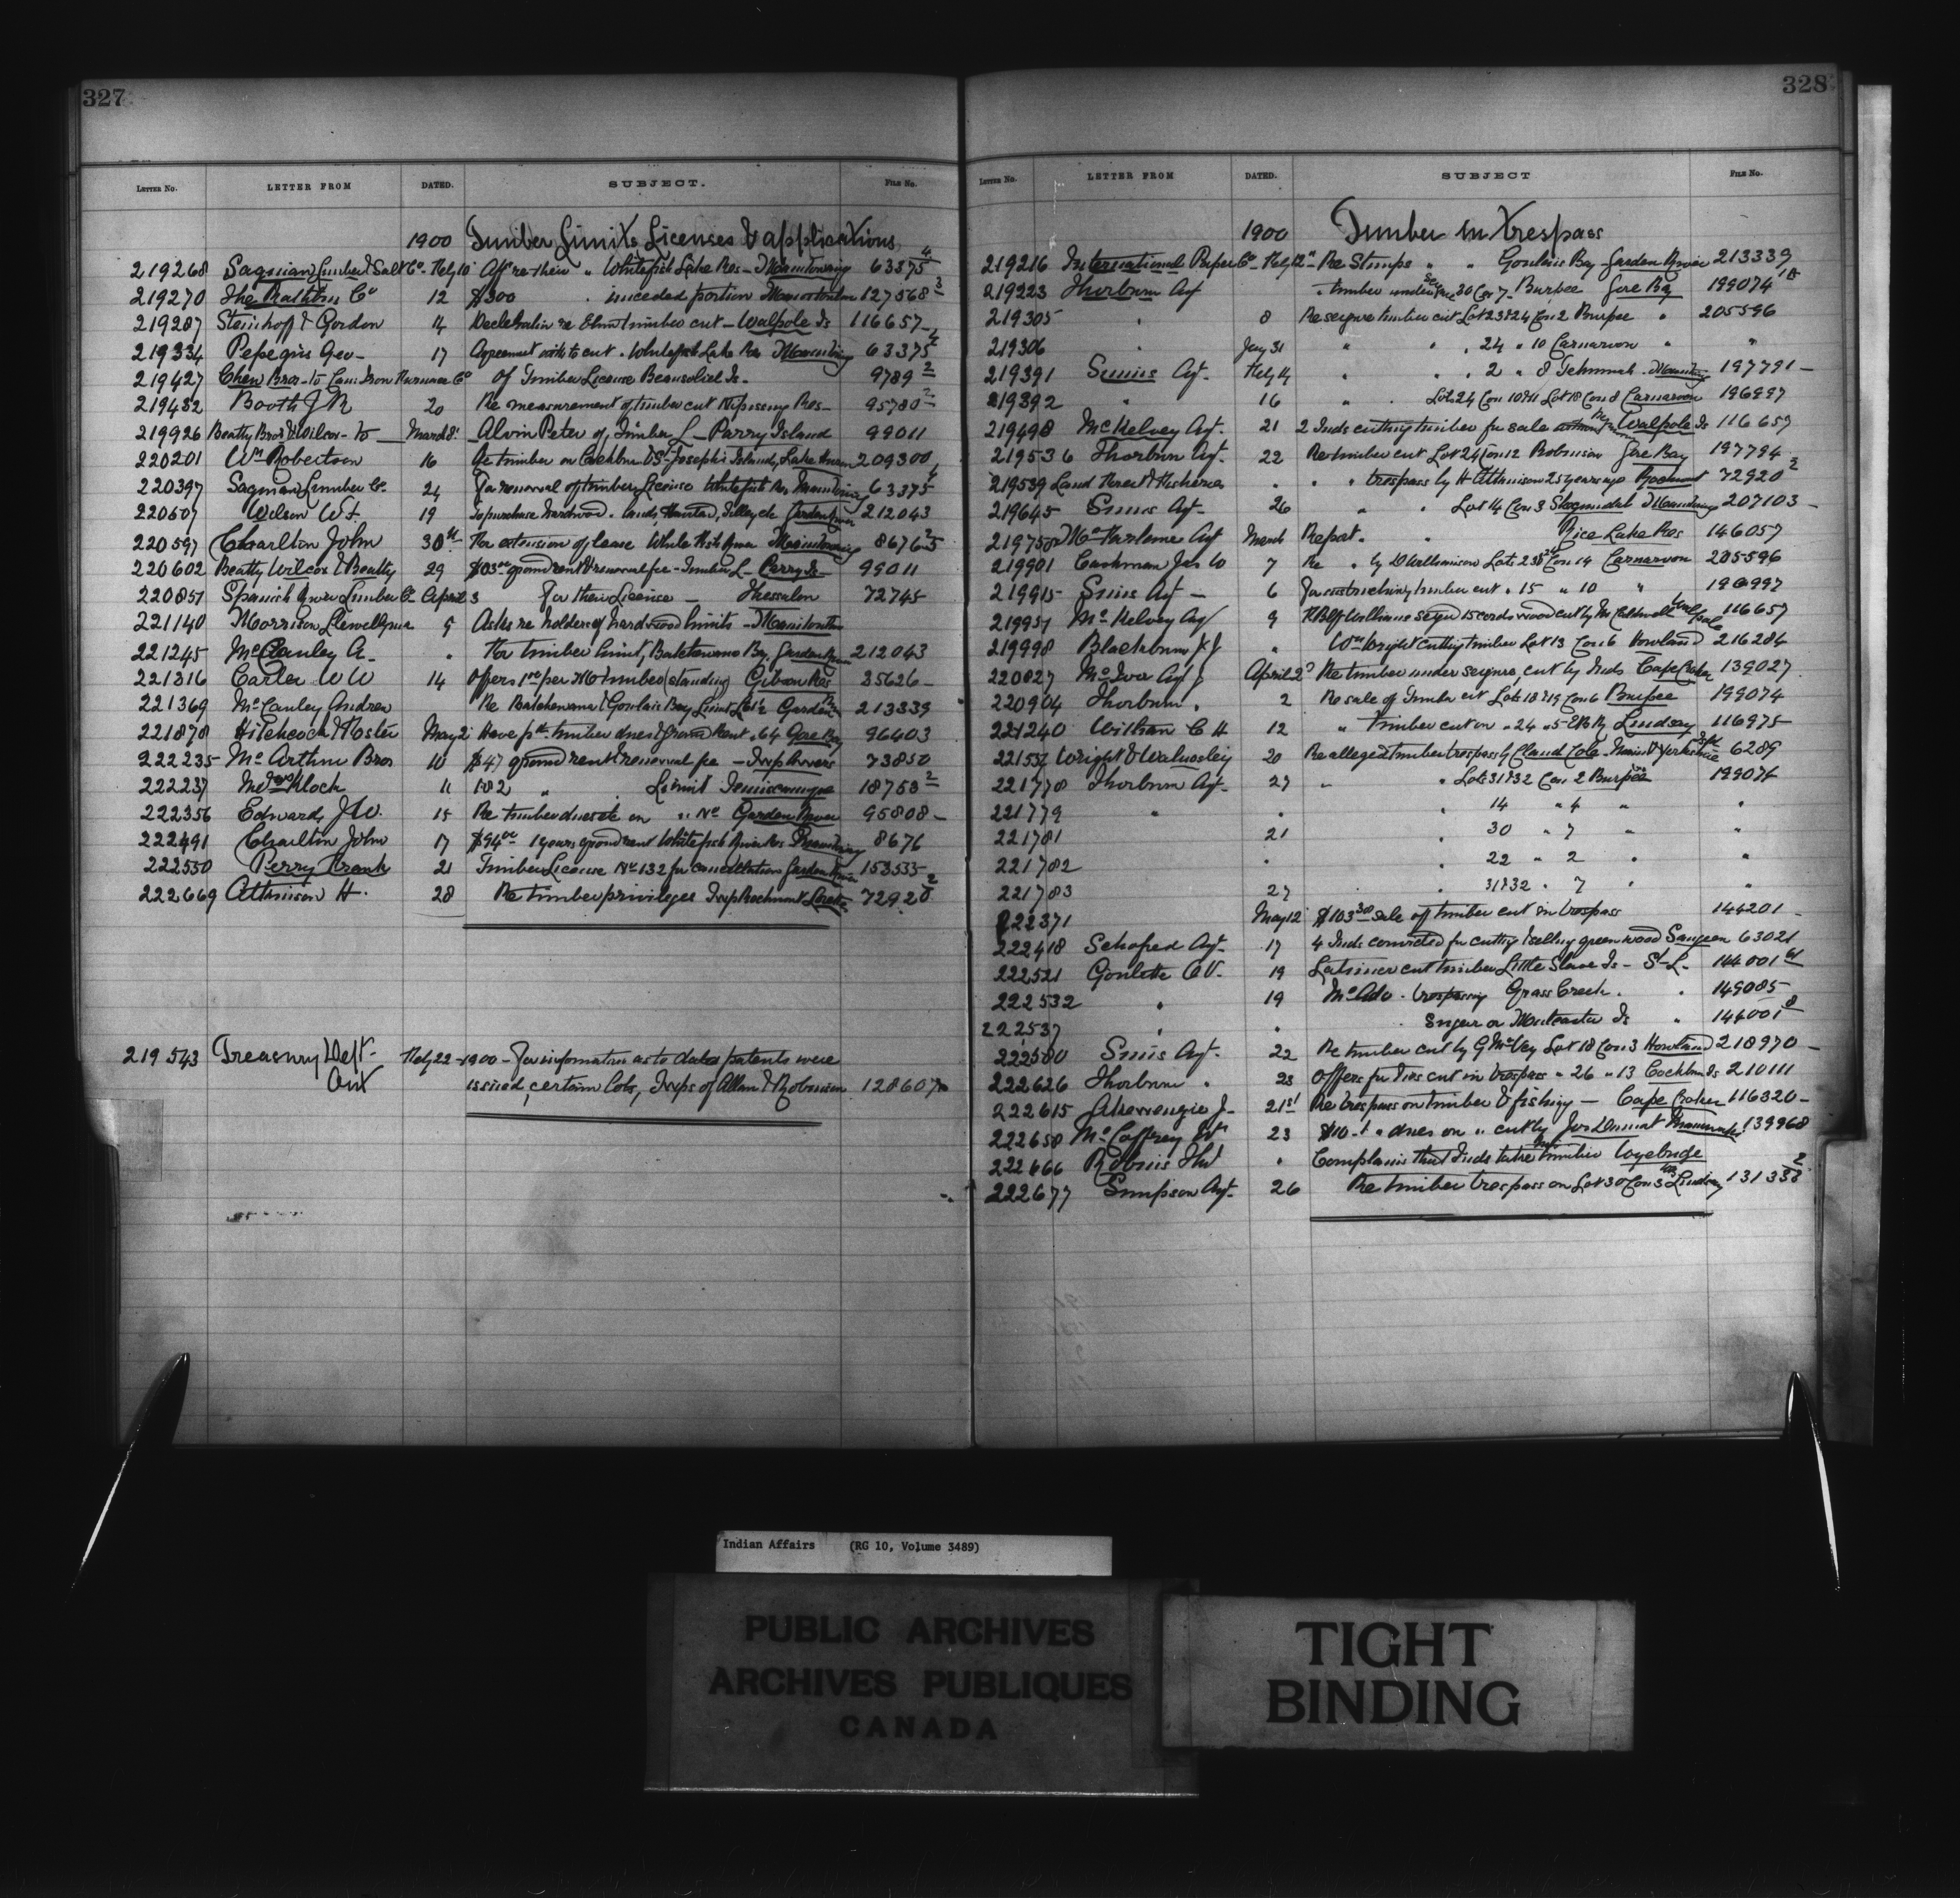 327
LETTER NO. LETTER FROM DATED. SUBJECT. FILE NO.
1900 Timber Limits Licenses & applications
219268 Saginaw Lumber & Salt Co. Feby 10 re their " Whitefish Lake Res - Manitowaning 63375 4
219270 The Rathbun Co 12 $300 " unceded portion 127568 3
219287 Steinhoff & Gordon 14 Declaration re Elm timber cut - Walpole Is 116657
219334 Geo - 17 Agreement with to cut . Whitefish Lake Res 63375
219427 Chew Bros - to Can. Iron Furnace Co of Timber License Beausoliel Is - 9789 2
219432 Booth J R 20 Re measurement of timber cut Nipissing Res - 95780 2
219926 Beatty Bros & Wilcox - to March 8 Alvin Peter of, Timber L - Parry Island 99011
220201 Wm Robertson 16 Re timber on Cockburn & St Joseph's Islands, Lake Huron 209300
220397 Saginaw Lumber Co. 24 For renewal of timber License Whitefish Res 63375 4
220507 Wilson W. 19 To purchase hardwood . lands, Tilley &c Garden River 212043
220597 Charlton John 30th For extension of lease White Fish River Manitowaning 8676 2
220602 Beatty Wilcox & Beatty 29 ground rent & renewal fee - Timber L - Parry Is 99011
220851 Spanish River Lumber Co. April 3 For their License - Thessalon 72745
221140 Morrison Llewellyn 5 Asks re holders of hardwood limits - 
221245 McCauley A. " For timber limit, Batchewana Bay, Garden River 212043
221316 Carter W W 14 Offers 1.00 per M timber (standing) Gibson Res 35626 -
221369 McCauley Andrew Re Batchewana & Goulais Bay Limit Garden 213339
221878 Hitchcock & Foster May 2 Have pd timber dues & ground Rent . 64 Gore Bay 96403
222235 McArthur Bros 10 $47 ground rent & renewal fee - 73850
222237 Klock 11 102 " Limit Temiscamingue 18753 2
222356 Edwards J W. 15 Re timber dues &c on " No Garden River 95808 -
222491 Charlton John 17 $94.00 1 years ground rent Whitefish River Res 8676
222550 Perry Frank 21 Timber License No 132 for cancellation Garden River 153535
222669 Atkinson H. 28 Re timber privileges 72920 2
219543 Treasury Dept. Ont Feby 22 - 1900 - For information as to dates patents were
issued, certain lots, Twps of Allan & Robinson 128607
328
LETTER NO. LETTER FROM DATED. SUBJECT FILE NO.
1900 Timber in trespass
219216 International Paper Co - Feby 12" Re Stumps " " Goulais Bay - Garden River 213339
219223 Thorburn Agt " timber under 30 Con 7 - Burpee Gore Bay 199074
219305 " 8 Re seizure timber cut Lot 23 & 24 Con 2 Burpee " 205596
219306 " Jany 31 " " 24 " 10 Carnarvon " "
219391 Simms Agt. Feby 14 " " 2 " 8 Tehkummah - 197791 -
219392 " 16 " Lots 24 Con 10 & 11 Lot 18 Con 8 Carnarvon 196997
219498 McKelvey Agt. 21 2 Inds cutting timber for sale Walpole Is 116657
219536 Thorburn Agt. 22 Re timber cut Lot 24 Con 12 Robinson Gore Bay 197794
219539 Land Forest & Fisheries " " " trespass by H Atkinson 25 years ago 72920 2
219645 Simms Agt. 26 " " Lot 14 Con 3 207103 -
219758 Agt March Report . " Rice Lake Res 146057
219901 Cashman Jas W 7 Re " by Williamson Lots 23 & Con 14 Carnarvon 205596
219915 Simms Agt - 6 timber cut " 15 " 10 " 196997
219951 McKelvey Agt 9 15 cords wood cut by 116657
219998 Blackburn " Wm Wright cutting timber Lot 13 Con 6 Howland 216284
220827 McIver Agt April 2 Re timber under seizure, cut by Inds Cape Croker 139027
220904 Thorburn " 2 Re sale of Timber cut Lots 18 & 19 Con 6 Burpee 199074
221240 Witham C H 12 " timber cut on " 24 " 5 E B R Lindsay 116975
221552 Wright & Walmsley 20 Re alleged timber trespass by 6289
221778 Thorburn Agt. 27 " " Lots 31 & 32 Con 2 Burpee 199074
221779 " " " 14 " 4 " "
221781 21 " 30 " 7 "
221782 " " 22 " 2 " "
221783 27 " 31 & 32 " 7 " "
222371 May 12 $103.30 sale of timber cut in trespass 145201 -
222418 Scoffield Agt. 17 4 Inds convicted for cutting & selling green wood Saugeen 63021
222521 Goulette 19 Latimer cut timber Little Slave Is - St L. 144001
222532 " 19 McAdo . trespassing Grass Creek . " 149085
222537 " " Sugar or Is " 144001 8
222580 Simms Agt. 22 Re timber cut by G McVey Lot 18 Con 3 Howland 218970 -
222626 Thorburn " 23 Offers for Ties cut in trespass " 26 " 13 Cockburn Is 210111
222615 Akewenzie J - 21st Re trespass on timber & fishing - Cape Croker 116320 -
222658 McCaffrey Wm 23 dues on " cut by 139968
222666 " Complains that Inds take timber 
222677 Simpson Agt. 26 Re timber trespass on Lot 30 Con 3 Lindsay 131338 2
Indian Affairs (RG 10, Volume 3489)
PUBLIC ARCHIVES
ARCHIVES PUBLIQUES
CANADA
TIGHT
BINDING